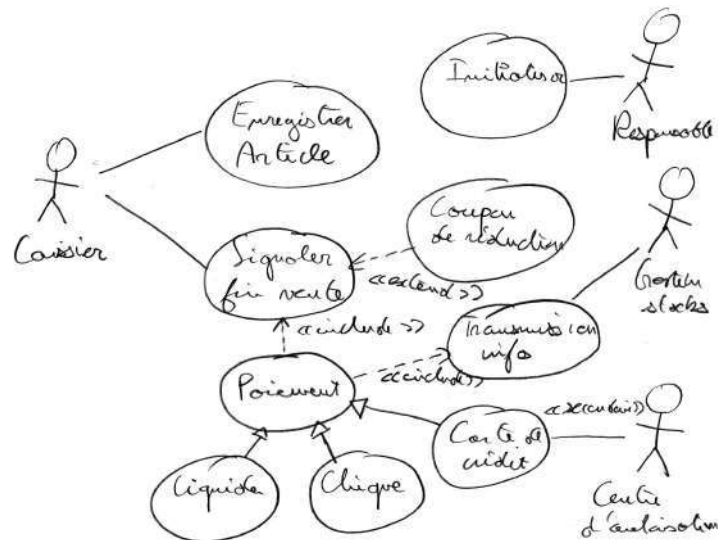 Initialiser
Responsable
Enregistrer
Article
Caissier
Coupon
de réduction
Signaler
fin vente
<<extend>>
<<include>>
Gestion
stocks
Transmission
infos
<<include>>
Paiement
Carte de
crédit
Liquide
Chèque
Centre
d'autorisation